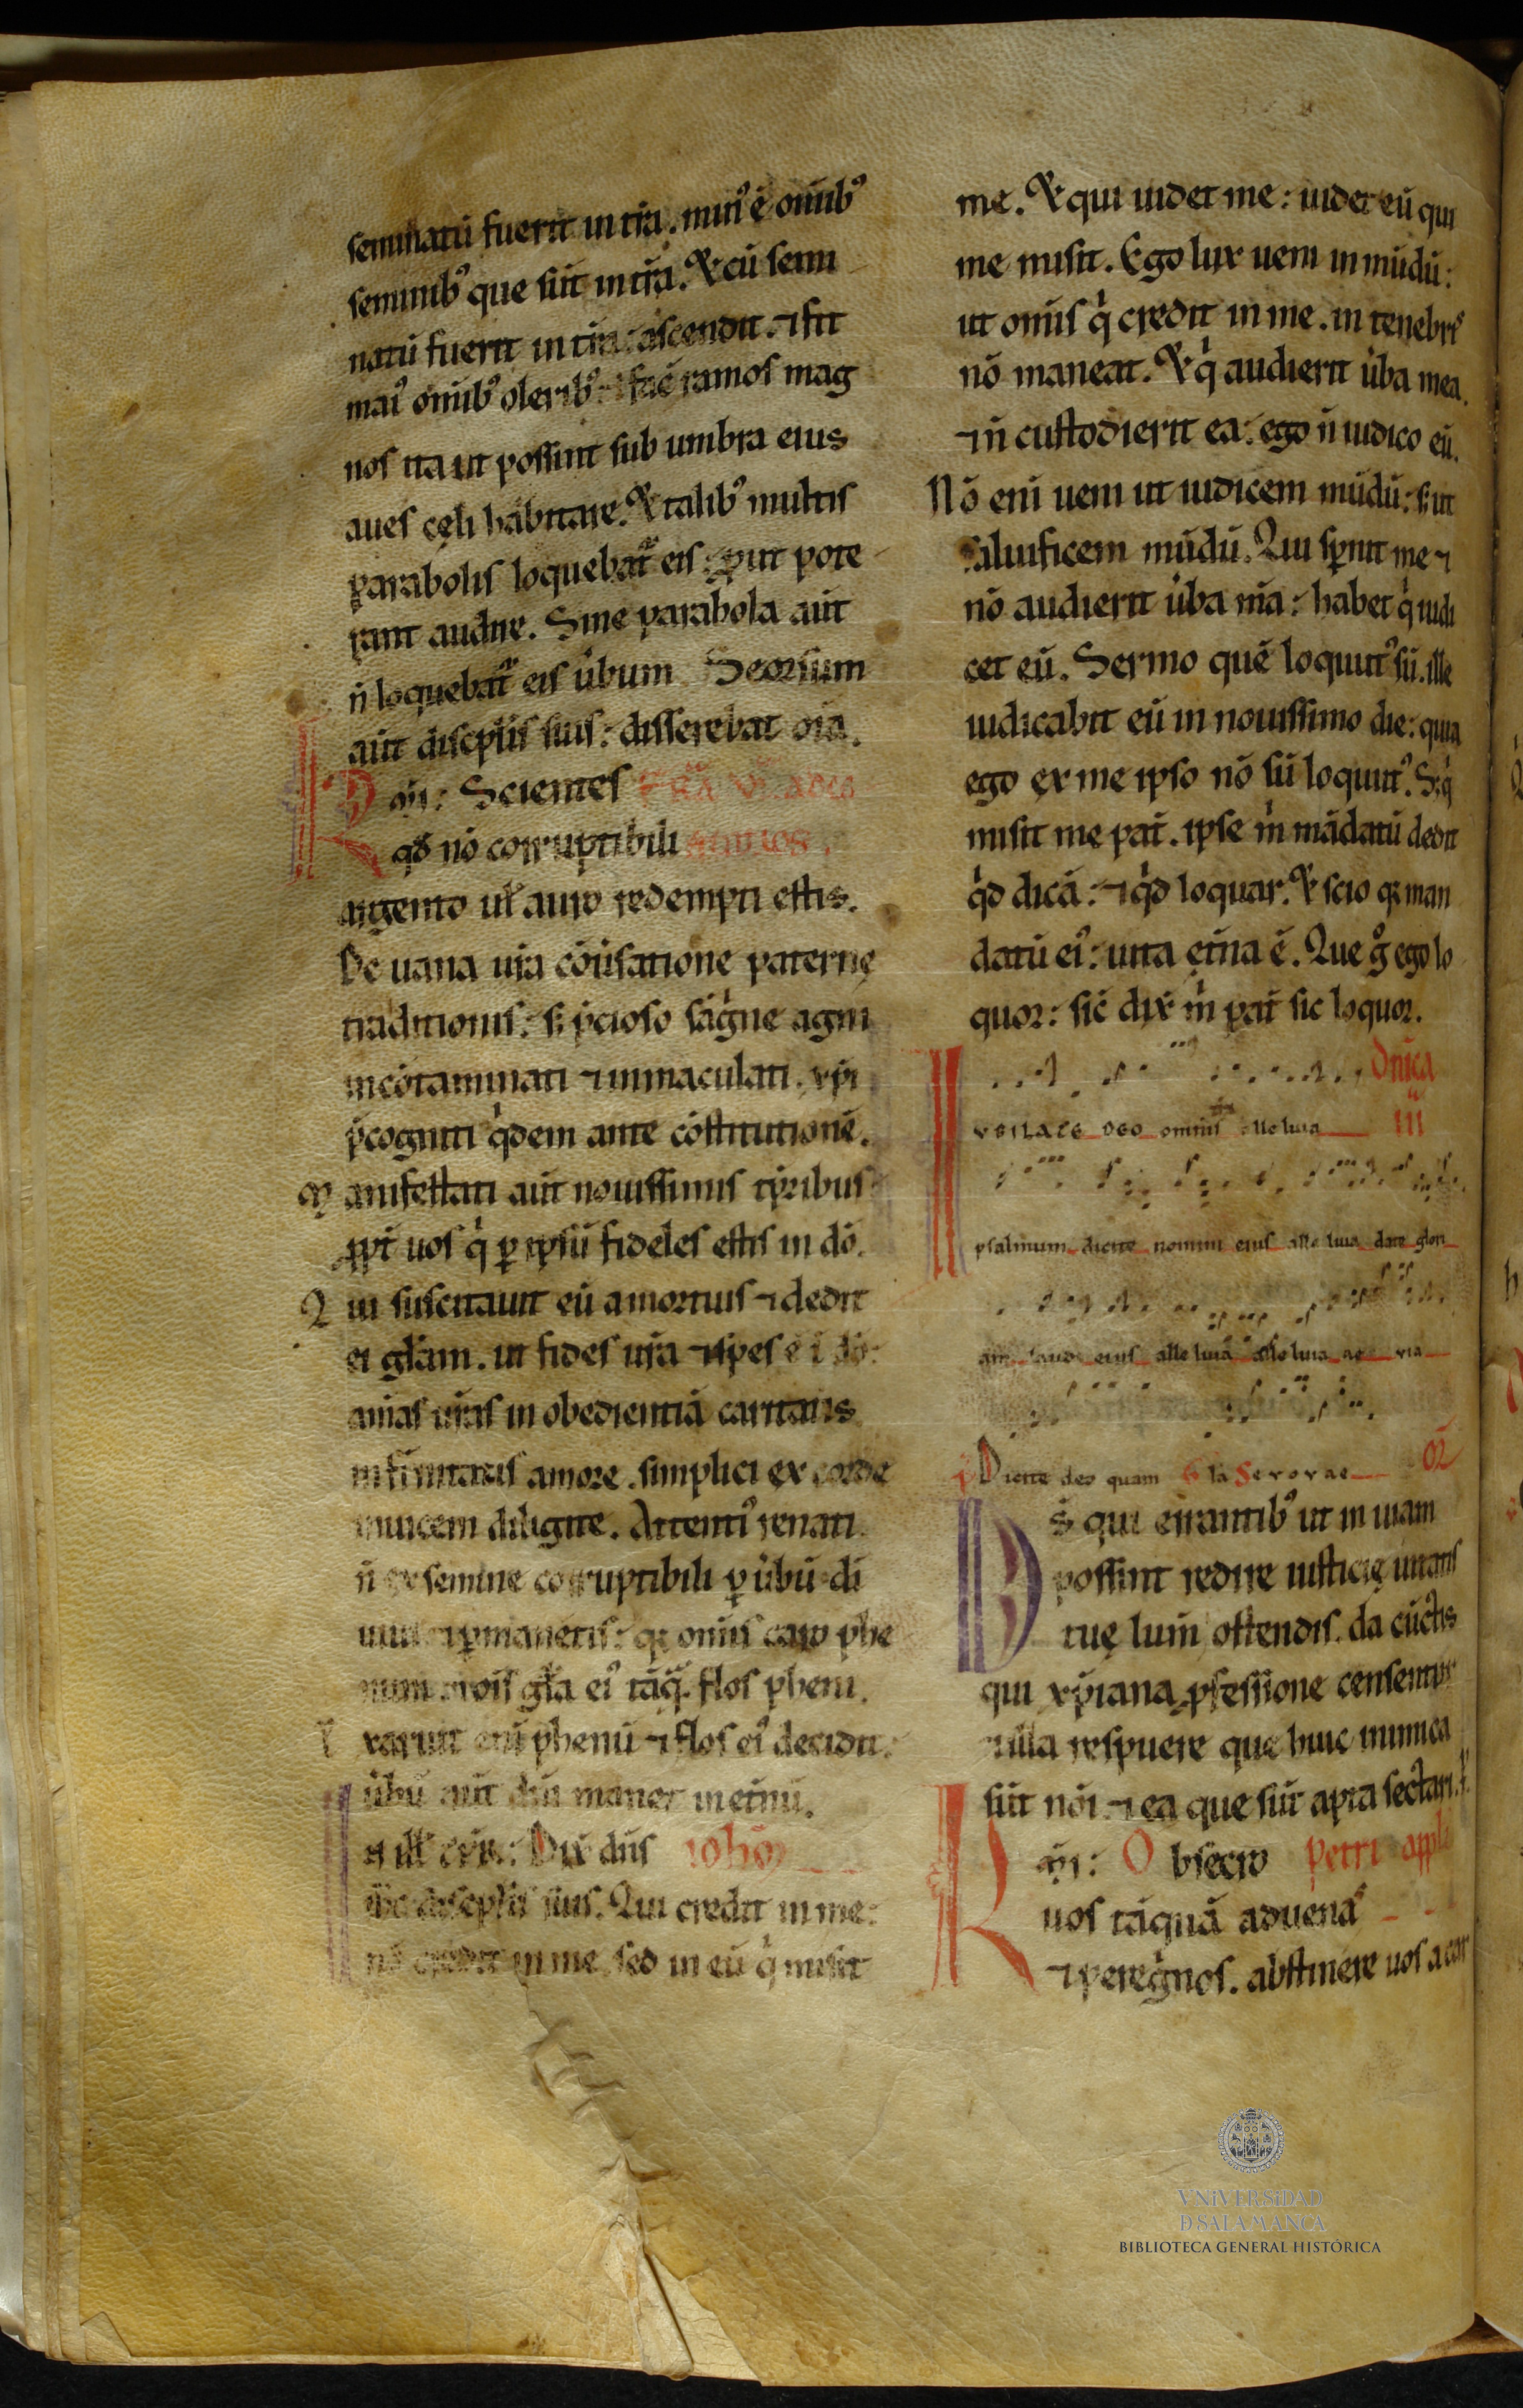 seminatū fuerit in tr̄a. min᷒ ē om̄ib᷒
seminib᷒ que sūt in tr̄a. Et cū semi
natū fuerit in tr̄a: ascendit. ⁊ fit
mai᷒ om̄ib᷒ olerib᷒. ⁊ faċ ramos mag
nos ita ut possint sub umbra eius
aues cęli habitare. Et talib᷒ multis
parabolis loquebat̄ eis: ꝓut pote
rant audire. Sine parabola aūt
n̄ loquebat̄ eis ūbum Seorsum
aūt discipl̄is suis: disserebat oīa.
Scientes
qd̄ nō corruptibili
argento ul̄ auro redempti estis.
De uana ur̄a cōūsatione paternę
traditionis: s; p̄cioso sāgⁱne agni
incōtaminati ⁊ inmaculati. xp̄i
p̄cogniti qⁱdem ante cōstitutionē.
Manifestati aūt nouissimis tp̄ribus
ꝓpt̄ uos qⁱ ꝑ ip̄sū fideles estis in dō.
Qui suscitauit eū a mortuis ⁊ dedit
ei gl̄am. ut fides ur̄a ⁊ spes ē ī dō:
anīas ur̄as in obedientiā caritatis
amore. simplici ex corde
inuicem diligite. Attenti᷒ renati
n̄ ex semine corruptibili ꝑ ūbū dī
uiui ⁊ ꝑmanetis: qꝫ omīs caro phe
num. ⁊ oīs gl̄a ei᷒ tāq̄. flos pheni.
xaruit enī phenū ⁊ flos ei᷒ decidit.
ūbū aūt dn̄i manet in et̄nū.
n ill̄ Dix̄ dn̄s ioh̄m
discipl̄is suis. Qui credit in me:
nō credit in me sed in eū qⁱ misit
me. Et qui uidet me: uidet eū qui
me misit. Ego lux ueni in mūdū:
ut omīs qⁱ credit in me. in tenebris
nō maneat. Et qⁱ audierit ūba mea.
⁊ n̄ custodierit ea: ego n̄ iudico eū.
Nō enī ueni ut iudicem mūdū: s; ut
saluificem mūdū. Qui sp̄nit me ⁊
nō audierit ūba m̄a: habet qⁱ iudi
cet eū. Sermo quē loquut᷒ sū. ille
iudicabit eū in nouissimo die: quia
ego ex me ipso nō sū loquut᷒. S; qⁱ
misit me pat̄. ipse mⁱ mādatū dedit
qⁱd dicā: ⁊ qⁱd loquar. Et scio qꝫ man
datū ei᷒: uita et̄na ē. Que gͦ ego lo
quor: sic̄ dix̄ mⁱ pat̄ sic loquor.
Dn̄ica
VBILATE DEO omnis alleluia III
psalmum dicite nomini eius alleluia date glori
am laudi eius alleluia alleluia ae via
Dicite deo quam Gla Seuouae OR̄
D s̄ qui errantib᷒ ut in uiam
possint redire iusticię uitatis
tuę lum̄ ostendis. da cūctis
qui xp̄iana ꝓfessione censentur
illa respuere que huic inimica
sūt nōi. ⁊ ea que sūt apta sectari.
Obsecro Petri appl̄i
uos tāquā aduenas
⁊ peregⁱnos. abstinere uos a car
VNiVERSiDAD
D SALAMANCA
BIBLIOTECA GENERAL HISTÓRICA